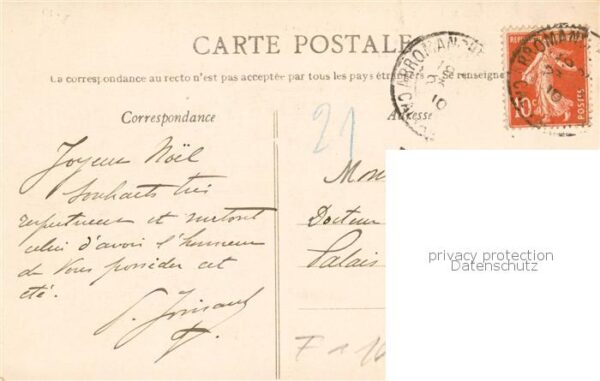 CARTE POSTALE
La correspondance au recto n'est pas acceptée par tous les pays étrangers Se renseigner
Correspondance
Adresse
21
Joyeux Noël
Souhaits très
respectueux et surtout
celui d'avoir l'honneur
de Vous posséder cet
été.
Docteur
Palais
10c
POSTES
privacy protection
Datenschutz